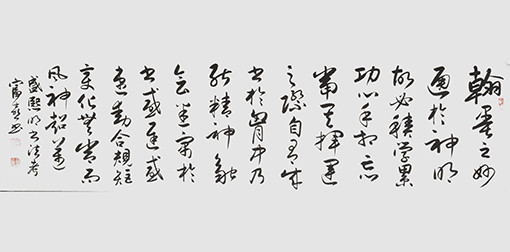 翰墨之妙
通於神明
故必積学累
功心手相忘
當其揮運
之際自有成
书於胸中乃
能精神融
会悉寓於
书或遲或
速動合規矩
變化無常而
風神超逸
盛熙明书法考